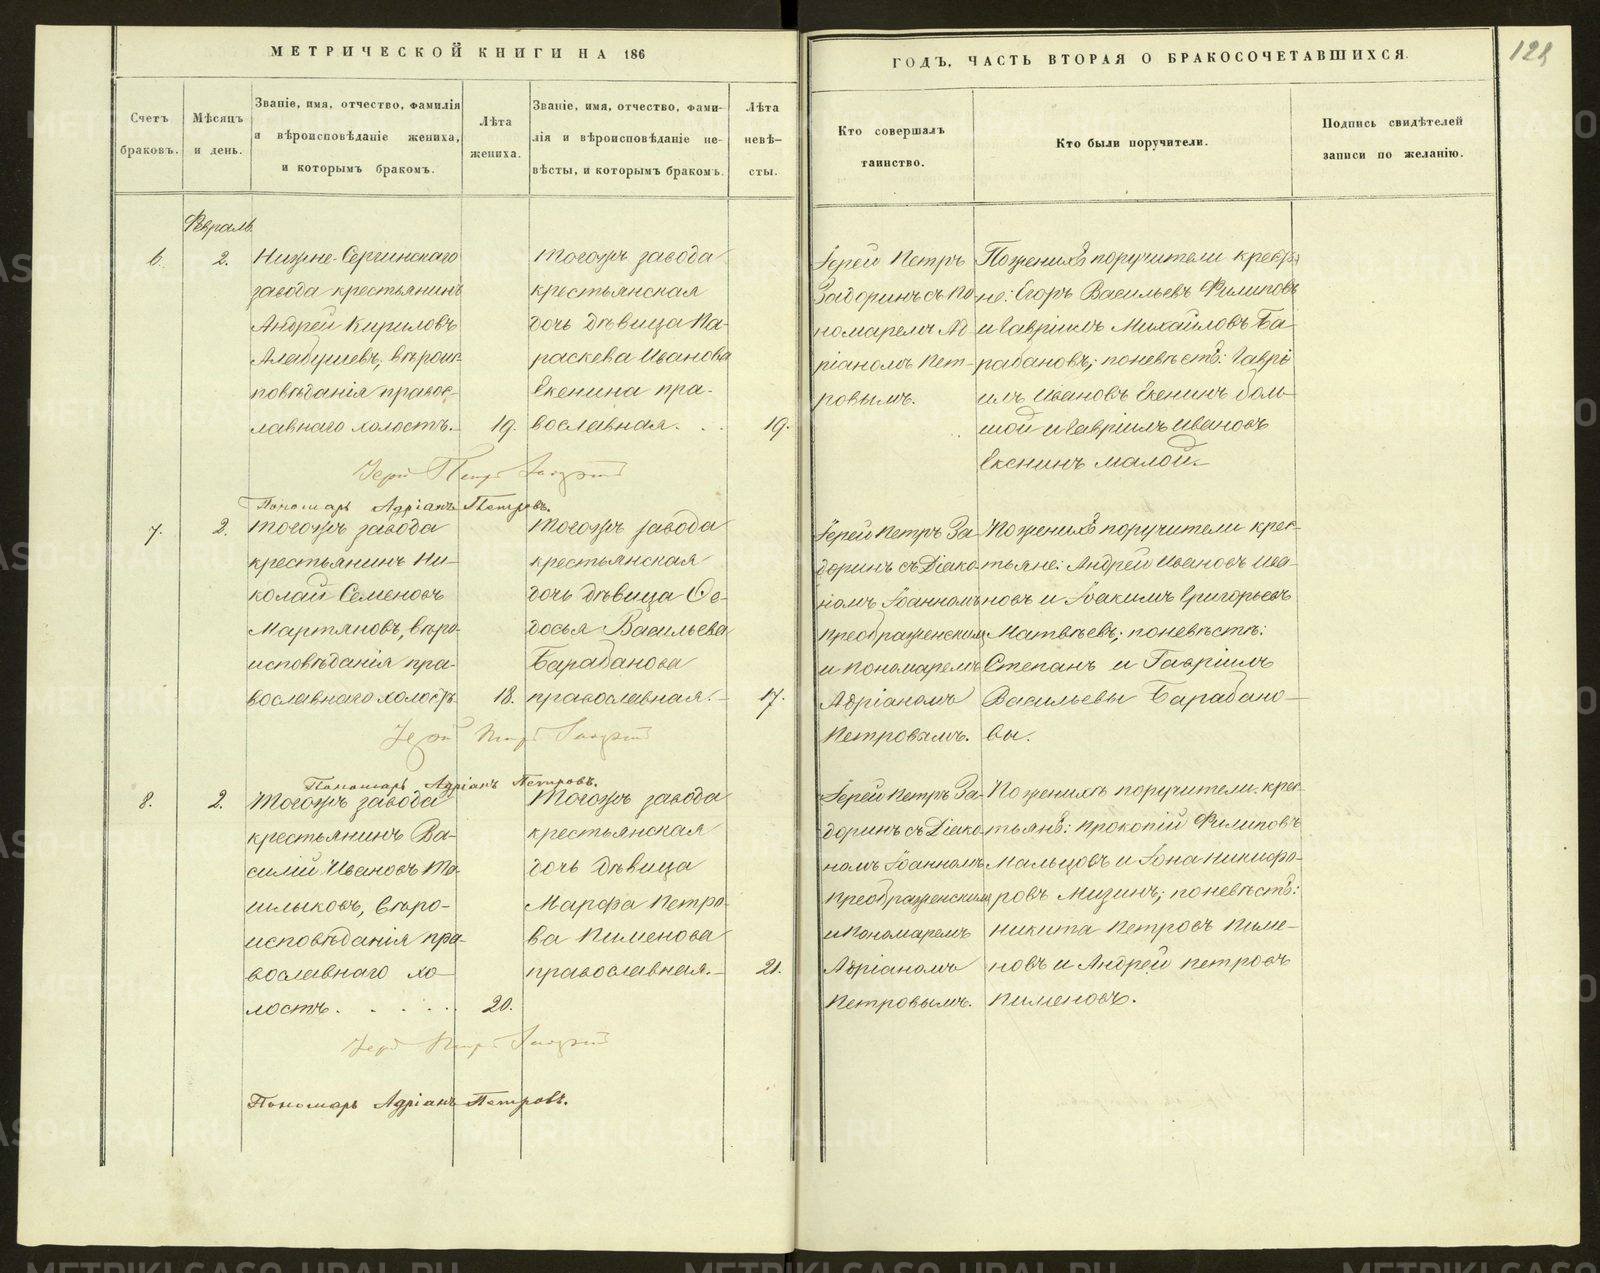 МЕТРИЧЕСКОЙ КНИГИ НА 186
ГОДЪ, ЧАСТЬ ВТОРАЯ О БРАКОСОЧЕТАВШИХСЯ.
Счетъ
браковъ.
Мѣсяцъ
и день.
Званіе, имя, отчество, фамилія
и вѣроисповѣданіе жениха,
и которымъ бракомъ.
Лѣта
жениха.
Званіе, имя, отчество, фами-
лія и вѣроисповѣданіе не-
вѣсты, и которымъ бракомъ.
Лѣта
невѣ-
сты.
Кто совершалъ
таинство.
Кто были поручители.
Подпись свидѣтелей
записи по желанію.
Февраль
6.
2.
Нижне-Сергинскаго
завода крестьянинъ
Андрей Кириловъ
Алабушевъ, вѣроис-
повѣданія правос-
лавнаго холостъ.
19.
Тогожъ завода
крестьянская
дочь дѣвица Па-
раскева Иванова
Екенина пра-
вославная.
19.
Іерей Петръ
Задоринъ съ По-
номаремъ Ад-
ріаномъ Пет-
ровымъ.
По женихѣ поручители крестья
не: Егоръ Васильевъ Филиповъ
и Гавріилъ Михайловъ Ба-
рабановъ; по невѣстѣ: Гаврі-
илъ Ивановъ Екенинъ боль-
шой и Гавріилъ Ивановъ
Екенинъ малой.
Іерей Петръ Задоринъ
Пономарь Адріанъ Петровъ.
7.
2.
Тогожъ завода
крестьянинъ Ни-
колай Семеновъ
Мартяновъ, вѣро-
исповѣданія пра-
вославнаго холостъ
18.
Тогожъ завода
крестьянская
дочь дѣвица Ѳе-
досья Васильева
Барабанова
православная.
17.
Іерей Петръ За-
доринъ съ Діако-
номъ Іоанномъ
Преображенскимъ
и Пономаремъ
Адріаномъ
Петровымъ.
По женихѣ поручители крес-
тьяне: Андрей Ивановъ Ива-
новъ и Іоакимъ Григорьевъ
Матвѣевъ; по невѣстѣ:
Степанъ и Гавріилъ
Васильевы Барабано-
вы.
Іерей Петръ Задоринъ
Пономарь Адріанъ Петровъ.
8.
2.
Тогожъ завода
крестьянинъ Ва-
силій Ивановъ Та-
шлыковъ, вѣро-
исповѣданія пра-
вославнаго хо-
лостъ.
20.
Тогожъ завода
крестьянская
дочь дѣвица
Марфа Петро-
ва Пименова
православная.
21.
Іерей Петръ За-
доринъ съ Діако-
номъ Іоанномъ
Преображенскимъ
и Пономаремъ
Адріаномъ
Петровымъ.
По женихѣ поручители крес-
тьянѣ: Прокопій Филиповъ
Мальцовъ и Іона Никифо-
ровъ Мизинъ; по невѣстѣ:
Никита Петровъ Пиме-
новъ и Андрей Петровъ
Пименовъ.
Іерей Петръ Задоринъ
Пономарь Адріанъ Петровъ.
METRIKI.GASO-URAL.RU